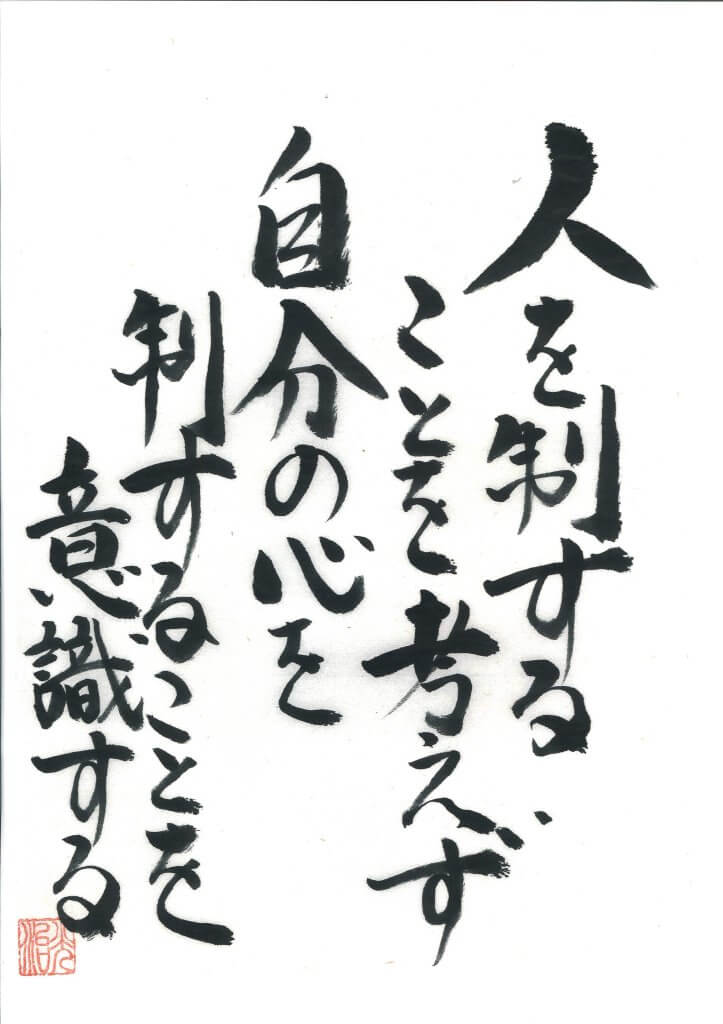 人を制する
ことを考えず
自分の心を
制することを
意識する